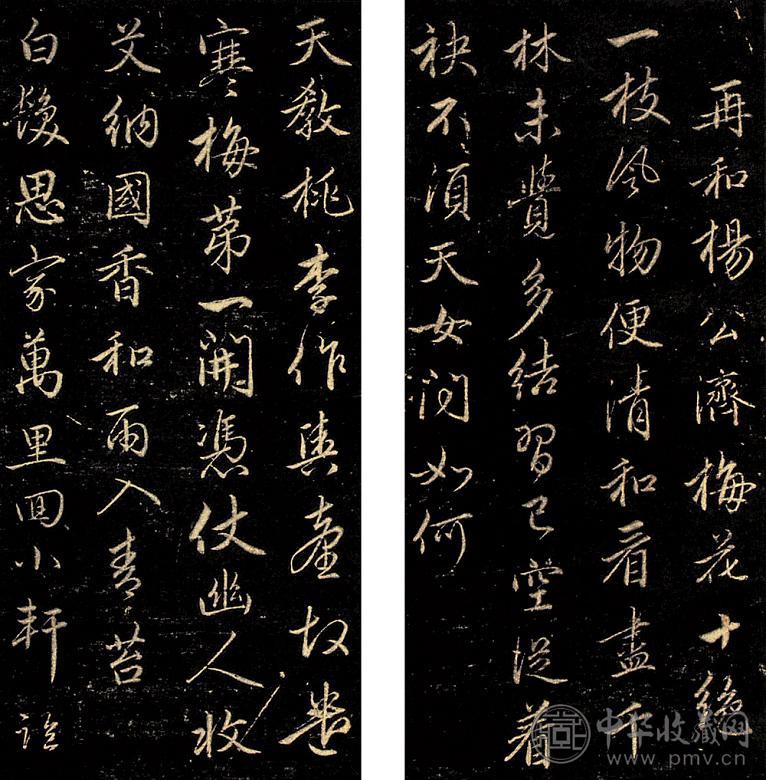 再和楊公濟梅花十絕
一枝風物便清和看盡千
林未覺多結習已空從着
袂不須天女問如何
天教桃李作輿臺故遣
寒梅第一開憑仗幽人收
艾納國香和雨入青苔
白髮思家萬里囬小軒臨
中华收藏网
www.pmv.cn